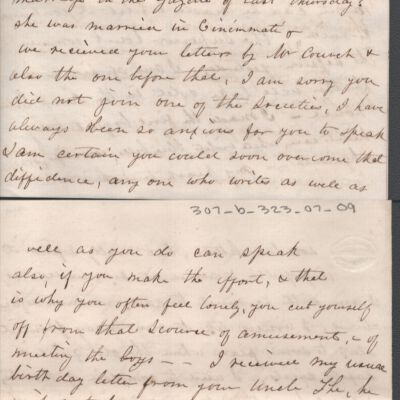 marriage in the Gazette of last Thursday.
she was married in Cincinnati &
we received your letters by Mr Couch &
also the one before that, I am sorry you
did not join one of the Societies, I have
always been so anxious for you to speak
I am certain you could soon overcome that
diffidence, any one who writes as well as
307-b-323-07-09
well as you do can speak
also if you make the effort, & that
is why you often feel lonely, you cut yourself
off from that scource of amusements, & of
meeting the boys - - I received my usual
birth day letter from your Uncle The, he